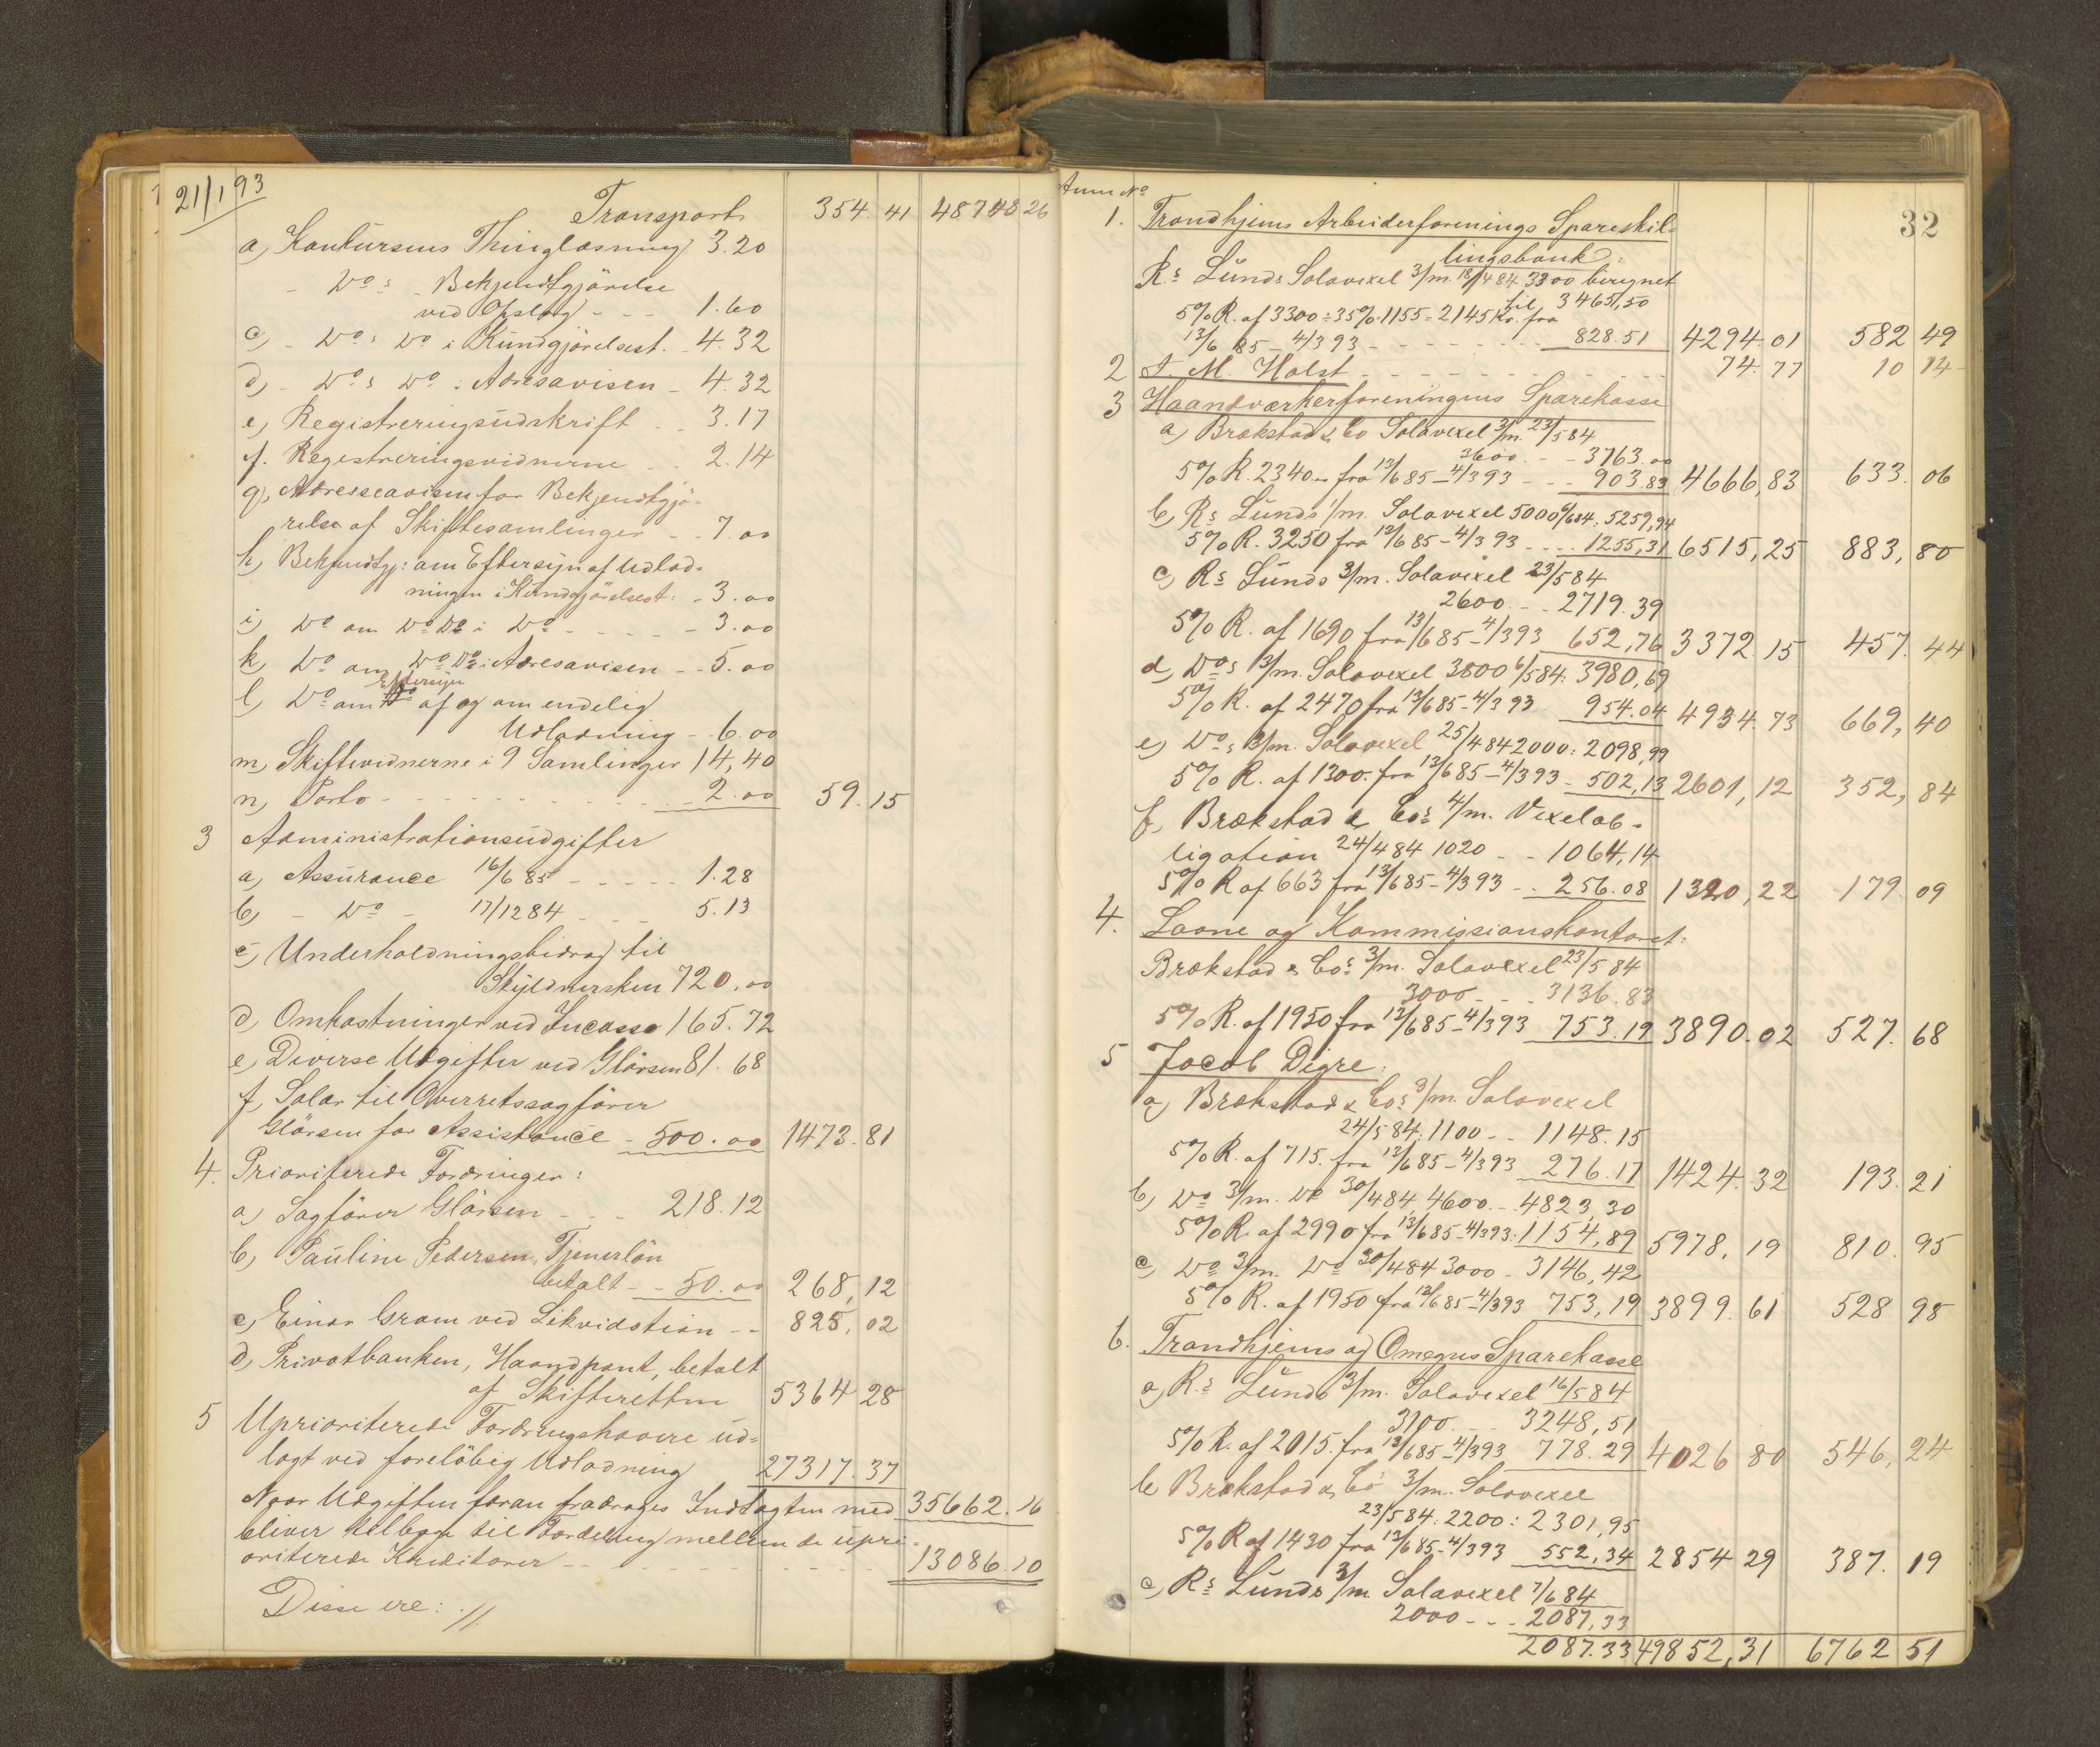 21/1 93
Transport 354.41 48748 26
a, Konkursens Thinglæsning 3.20
- Do s - Bekjendtgjörelse
ved Opslag - - - 1.60
c) - Do s Do i Kundgjörelsest. - 4.32
d) - Do s Do i Adresavisen - 4.32
e, Registreringsudskrift - - 3.17
f. Registreringsvidnerne - - 2.14
g, Adresseavisen for Bekjendtgjö-
relse af Skiftesamlinger - - 7.00
h, Bekjendtgj: om Eftersyn af Udlod-
ningen i Kundgjörelsest: - 3.00
i) Do om Do Do i Do - - - - - 3.00
k, Do om Do Do i Adresavisen - - 5.00
Eftersyn
l, Do om af og om endelig
Udlodning - - 6.00
m, Skiftevidnerne i 9 Samlinger 14,40
n, Porto - - - - - - - - 2.00 59.15
3 Administrationsudgifter
a, Assurance 16/6 85 - - - - - 1.28
b) - Do - 17/12 84 - - - 5.13
c, Underholdningsbidrag til
Skyldnersken 720.00
d, Omkostninger ved Incasso 165.72
e, Diverse Udgifter ved Glörsen 81.68
f, Salær til Overretssagförer
Glörsen for Assistance - 500.00 1473.81
4. Prioriterede Fordringer:
a, Sagförer Glörsen - - - 218.12
b, Pauline Pedersen, Tjenerlön
betalt - - 50.00 268,12
c, Einar Gram ved Likvidation - - 825,02
d, Privatbanken, Haandpant, betalt
af Skifteretten 5364 28
5 Uprioriterede Fordringshavere ud-
lagt ved foreløbig Udlodning 27317.37
Naar Udgiften foran fradrages Indtægten med 35662.16
bliver tilbage til Fordeling mellem de upri-
oriterede Kreditorer - - - - - - - 13086.10
Disse ere: //.
Anm No
32
1. Trondhjems Arbeiderforenings Spareskil-
lingsbank:
Rs Lunds Solavexel 3/m. 18/4 84 3300 beregnet
til 3465,50
5% R. af 3300 ÷ 35% 1155 = 2145 Kr. fra
13/6 85 - 4/3 93 - - - - - - - 828.51 4294.01 582 49
2 A. M. Holst - - - - - - - - - - 74.77 10 14
3 Haandværkerforeningens Sparekasse
a, Brækstad & Co Solavexel 3/m. 23/5 84
3600 - - - 3763.00
5% R. 2340.- fra 13/6 85 - 4/3 93 - - - 903.83 4666,83 633.06
b, Rs Lunds 1/m. Solavexel 5000 6/6 84. 5259,94
5% R. 3250 fra 13/6 85 - 4/3 93 - - - - 1255,31 6515,25 883,80
c, Rs Lunds 3/m. Solavexel 23/5 84
2600 - - - 2719.39
5% R. af 1690 fra 13/6 85 - 4/3 93 652,76 3372.15 457.44
d, Do s 3/m. Solavexel 3800 6/5 84. 3980,69
5% R. af 2470 fra 13/6 85 - 4/3 93 954.04 4934.73 669,40
e, Do s 3/m. Solavexel 25/4 84 2000: 2098,99
5% R. af 1300. fra 13/6 85 - 4/3 93 - 502,13 2601,12 352,84
f, Brækstad & Cos 4/m. Vexelob-
ligation 24/4 84 1020 - - 1064,14
5% R af 663 fra 13/6 85 - 4/3 93 - - 256.08 1320,22 179.09
4. Laane og Kommissionskontoret:
Brækstad & Cos 3/m. Solavexel 23/5 84
3000 - - - 3136.83
5% R. af 1950 fra 13/6 85 - 4/3 93 753.19 3890.02 527.68
5 Jacob Digre:
a, Brækstad & Cos 3/m. Solavexel
24/5 84. 1100 - - 1148.15
5% R. af 715. fra 13/6 85 - 4/3 93 276.17 1424.32 193.21
b, Do 3/m. Do 30/4 84, 4600 - - 4823,30
5% R. af 2990 fra 13/6 85 - 4/3 93. 1154,89 5978,19 810.95
c, Do 3/m. Do 30/4 84 3000 - 3146,42
5% R. af 1950 fra 13/6 85 - 4/3 93 753,19 3899.61 528 98
6. Trondhjems og Omegns Sparekasse
a, Rs Lunds 3/m. Solavexel 16/5 84
3100 - - 3248,51
5% R. af 2015. fra 13/6 85 - 4/3 93 778.29 4026 80 546,24
b, Brækstad & Co 3/m. Solavexel
23/5 84. 2200: 2301,95
5% R af 1430 fra 13/6 85 - 4/3 93 552,34 2854 29 387.19
c, Rs Lunds 3/m Solavexel 7/6 84
2000 - - - 2087,33
2087.33 49852,31 6762 51